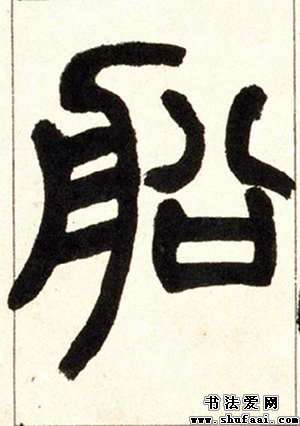 船
书法爱网
www.shufaai.com